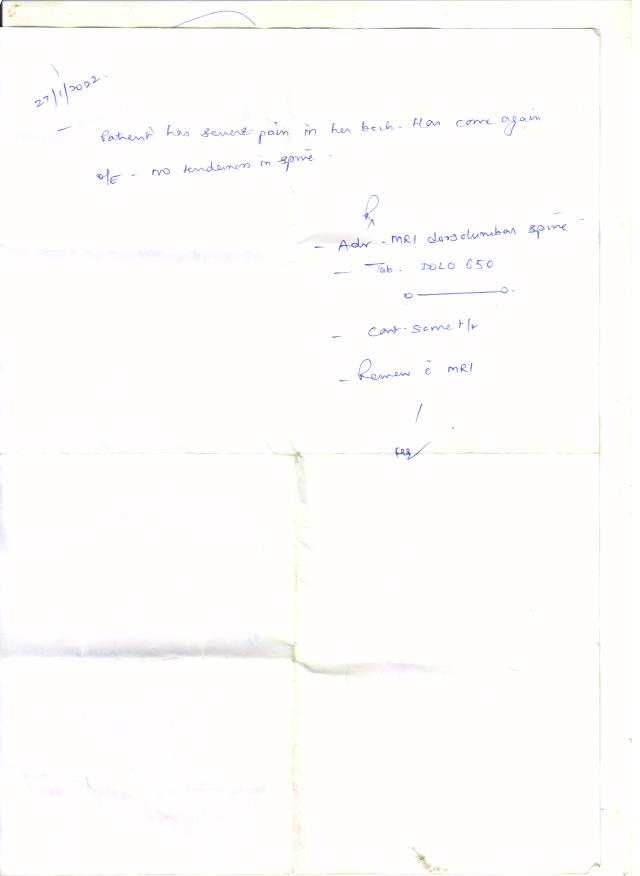 27/1/2022.
- Patient has severe pain in her back. Has come again
O/E - no tenderness in spine.
Rx
- Adv - MRI dorsolumbar spine
- Tab. DOLO 650
o———o.
- Cont. same t/t
- Review c̄ MRI